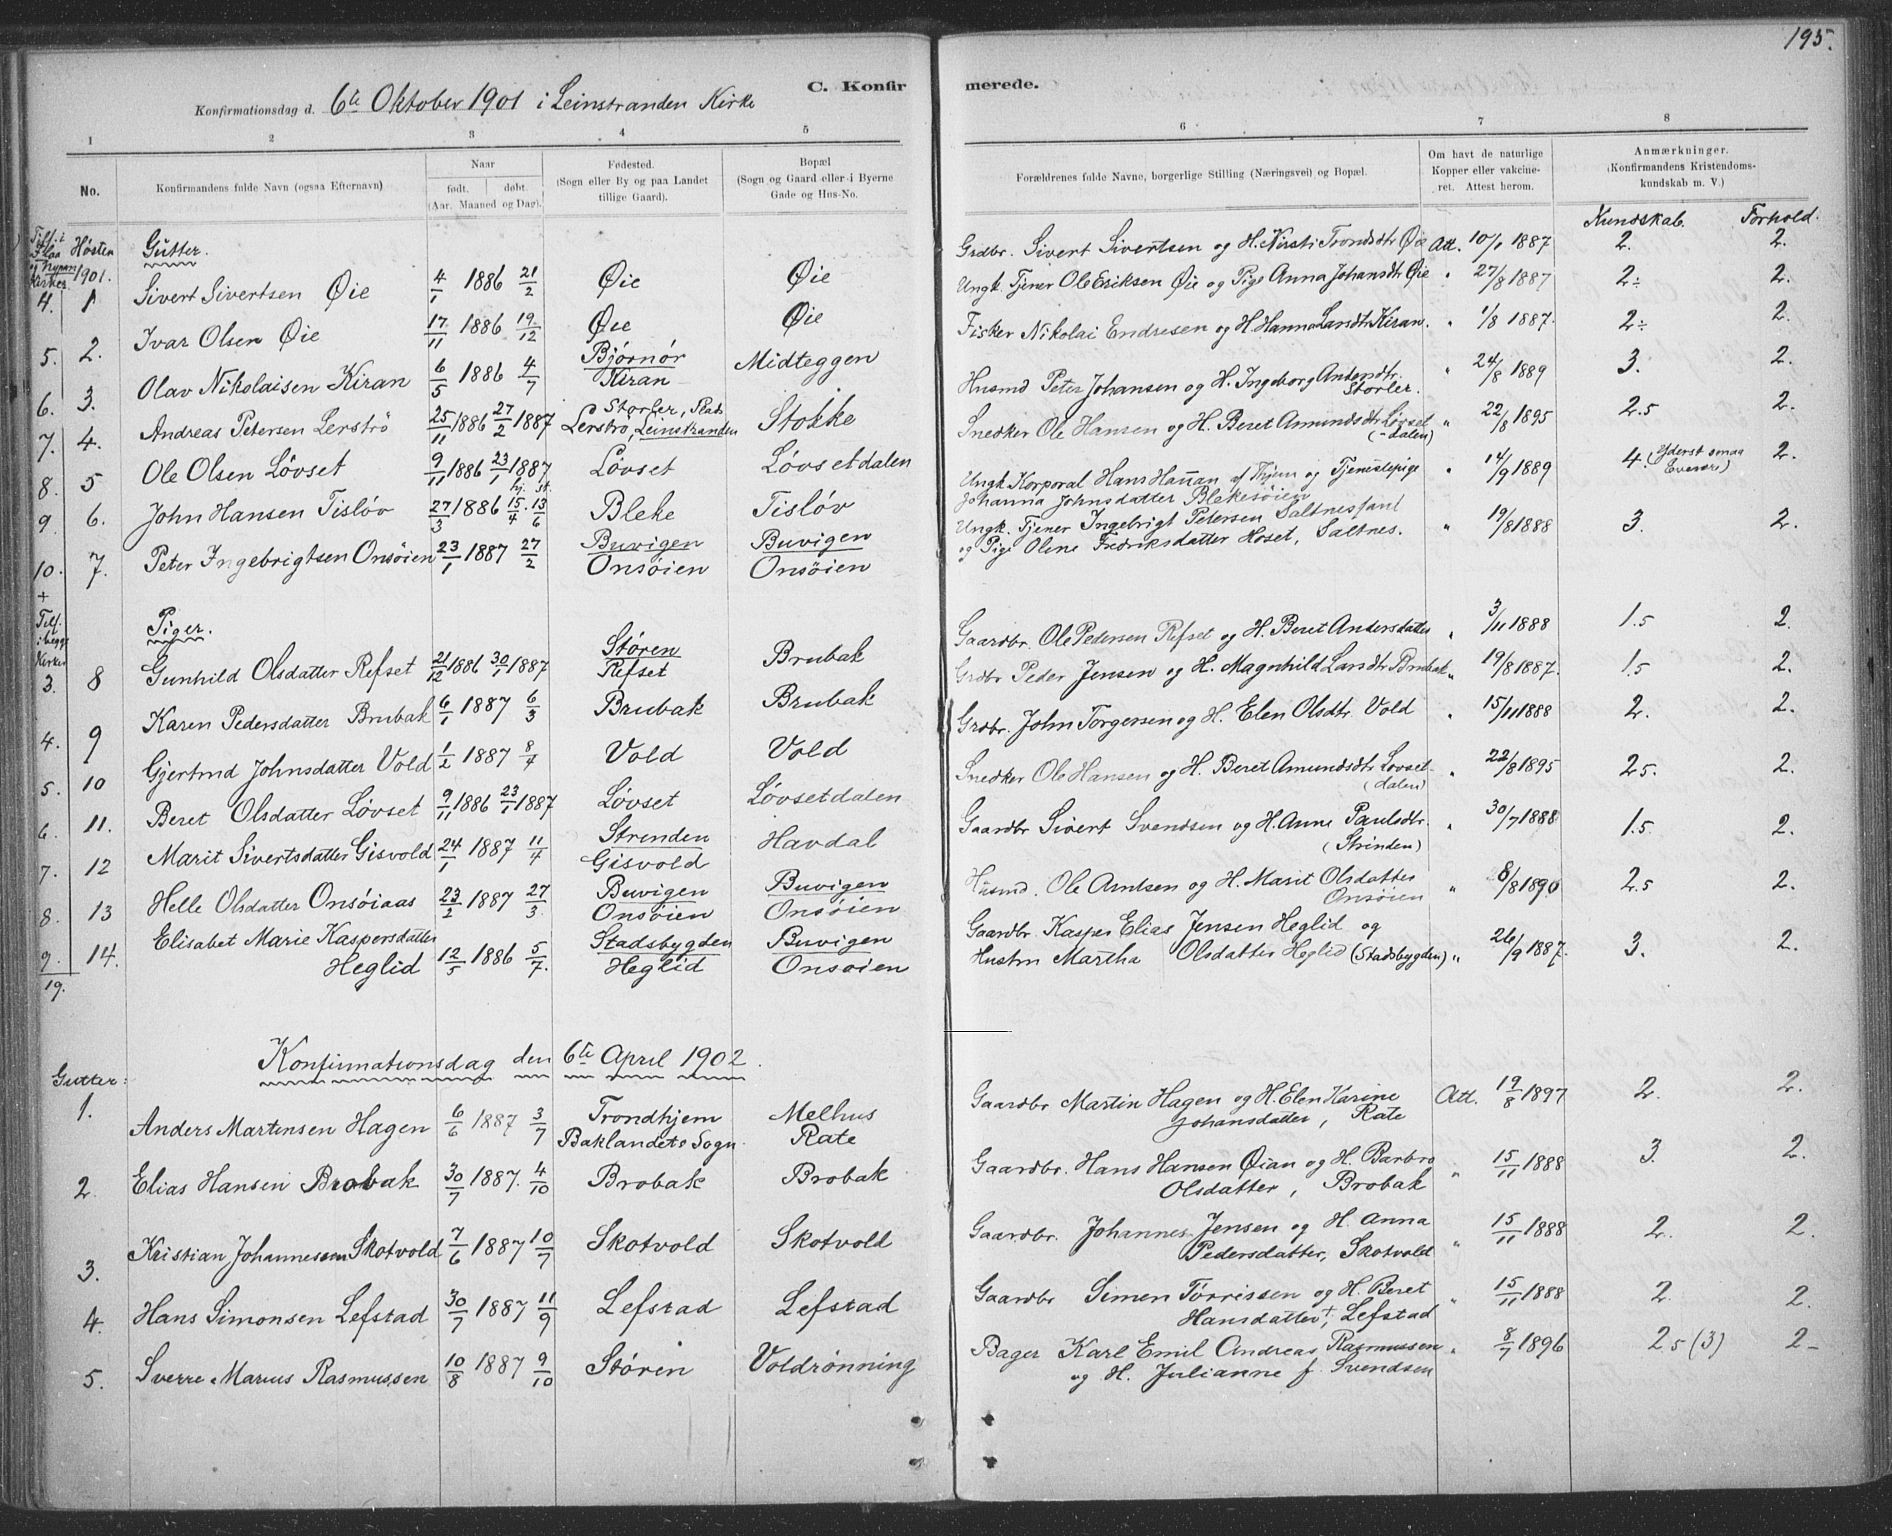 195.
C. Konfirmerede.
Konfirmationsdag d. 6te Oktober 1901 i Leinstranden Kirke
1 2 3 4 5 6 7 8
No.
Konfirmandens fulde Navn (ogsaa Efternavn)
Naar
født. døbt.
(Aar, Maaned og Dag).
Fødested.
(Sogn eller By og paa Landet
tillige Gaard).
Bopæl
(Sogn og Gaard eller i Byerne
Gade og Hus-No.
Forældrenes fulde Navne, borgerlige Stilling (Næringsvei) og Bopæl.
Om havt de naturlige
Kopper eller vakcine-
ret. Attest herom.
Anmærkninger.
(Konfirmandens Kristendoms-
kundskab m. V.)
Kundskab. Forhold.
Høsten
1901.
Gutter.
4. 1 Sivert Sivertsen Øie 4/1 1886 21/2 Øie Øie Grdbr. Sivert Sivertsen og H. Kirsti Trondsdtr Øie Att. 10/1 1887 2. 2.
5. 2. Ivar Olsen Øie 17/11 1886 19/12 Øie Øie Ungk. Tjener Ole Eriksen Øie og Pige Anna Johansdtr Øie " 27/8 1887 2÷ 2.
6. 3. Olav Nikolaisen Kiran 6/5 1886 4/7 Bjørnør Kiran Midteggen Fisker Nikolai Endresen og H. Hanna Larsdtr Kiran. " 1/8 1887. 2÷ 2.
7. 4. Andreas Petersen Lerstrø 25/11 1886 27/2 1887 Storler, Plads Lerstrø, Leinstranden Stokke Husmd Peter Johansen og H. Ingeborg Andersdtr. Storler. " 24/8 1889 3. 2.
8. 5 Ole Olsen Løvset 9/11 1886 23/1 1887 Løvset Løvsetdalen Snedker Ole Hansen og H. Beret Amundsdtr Løvset (-dalen) " 22/8 1895 2.5 2.
9. 6. John Hansen Tisløv 27/3 1886 hj. 15/4 st. 13/6 Bleke Tisløv Ungk. Korporal Hans Hansen af Thjem og Tjenestepige
Johanna Johnsdatter Blekesøien " 14/9 1889 4. (Yderst smaa Evner) 2.
10. 7. Peter Ingebrigtsen Onsøien 23/1 1887 27/2 Buvigen Onsøien Buvigen Onsøien Ungk. Tjener Ingebrigt Petersen Saltnessand
og Pige Oline Fredriksdatter Hoset, Saltnes. " 19/8 1888 3. 2.
+
Piger.
3. 8 Gunhild Olsdatter Refset 21/12 1886 30/1 1887 Støren Refset Brubak Gaardbr. Ole Pedersen Refset og H. Beret Andersdatter " 3/11 1888 1.5 2.
4. 9 Karen Pedersdatter Brubak 6/1 1887 6/3 Brubak Brubak Grdbr Peder Jensen og H. Magnhild Larsdtr Brubak " 19/8 1887. 1.5 2.
5. 10 Gjertrud Johnsdatter Vold 1/2 1887 8/4 Vold Vold Grdbr. John Torgersen og H. Elen Olsdtr. Vold " 15/11 1888 2. 2.
6. 11. Beret Olsdatter Løvset 9/11 1886 23/1 1887 Løvset Løvsetdalen Snedker Ole Hansen og H. Beret Amundsdtr Løvset- (dalen) " 22/8 1895 2.5. 2.
7. 12 Marit Sivertsdatter Gisvold 24/1 1887 11/4 Strenden Gisvold Havdal Gaardbr Sivert Svendsen og H. Anne Paulsdtr. (Strinden) " 30/7 1888 1.5 2.
8. 13 Helle Olsdatter Onsøiaas 23/2 1887 27/3. Buvigen Onsøien Buvigen Onsøien Husmd. Ole Arntsen og H. Marit Olsdatter Onsøien " 8/8 1890 2.5 2.
9. 14. Elisabet Marie Kaspersdatter
Heglid 12/5 1886 5/7. Stadsbygden Heglid Buvigen Onsøien Gaardbr. Kasper Elias Jensen Heglid og
Hustru Martha Olsdatter Heglid (Stadsbygden) " 26/9 1887. 3. 2.
19.
Konfirmationsdag den 6te April 1902.
Gutter:
1. Anders Martinsen Hagen 6/6 1887 3/7 Trondhjem Baklandets Sogn. Melhus Rate Gaardbr Martin Hagen og H. Elen Karine
Johansdatter, Rate Att. 19/8 1897 2. 2.
2. Elias Hansen Brobak 30/7 1887. 4/10 Brobak Brobak Gaardbr. Hans Hansen Øian og H. Barbro
Olsdatter, Brobak " 15/11 1888 3. 2.
3. Kristian Johannessen Skotvold 7/6 1887 10/7 Skotvold Skotvold Gaardbr. Johannes Jensen og H. Anna
Pedersdatter, Skotvold " 15/11 1888 2. 2.
4. Hans Simonsen Lefstad 30/7 1887 11/9 Lefstad Lefstad Gaardbr Simen Tørrissen og H. Beret
Hansdatter†, Lefstad " 15/11 1888 2. 2.
5. Sverre Marius Rasmussen 10/8 1887 9/10 Støren Voldrønning Bager Karl Emil Andreas Rasmussen
og H. Julianne f. Svendsen " 8/7 1896 2.5 (3) 2-